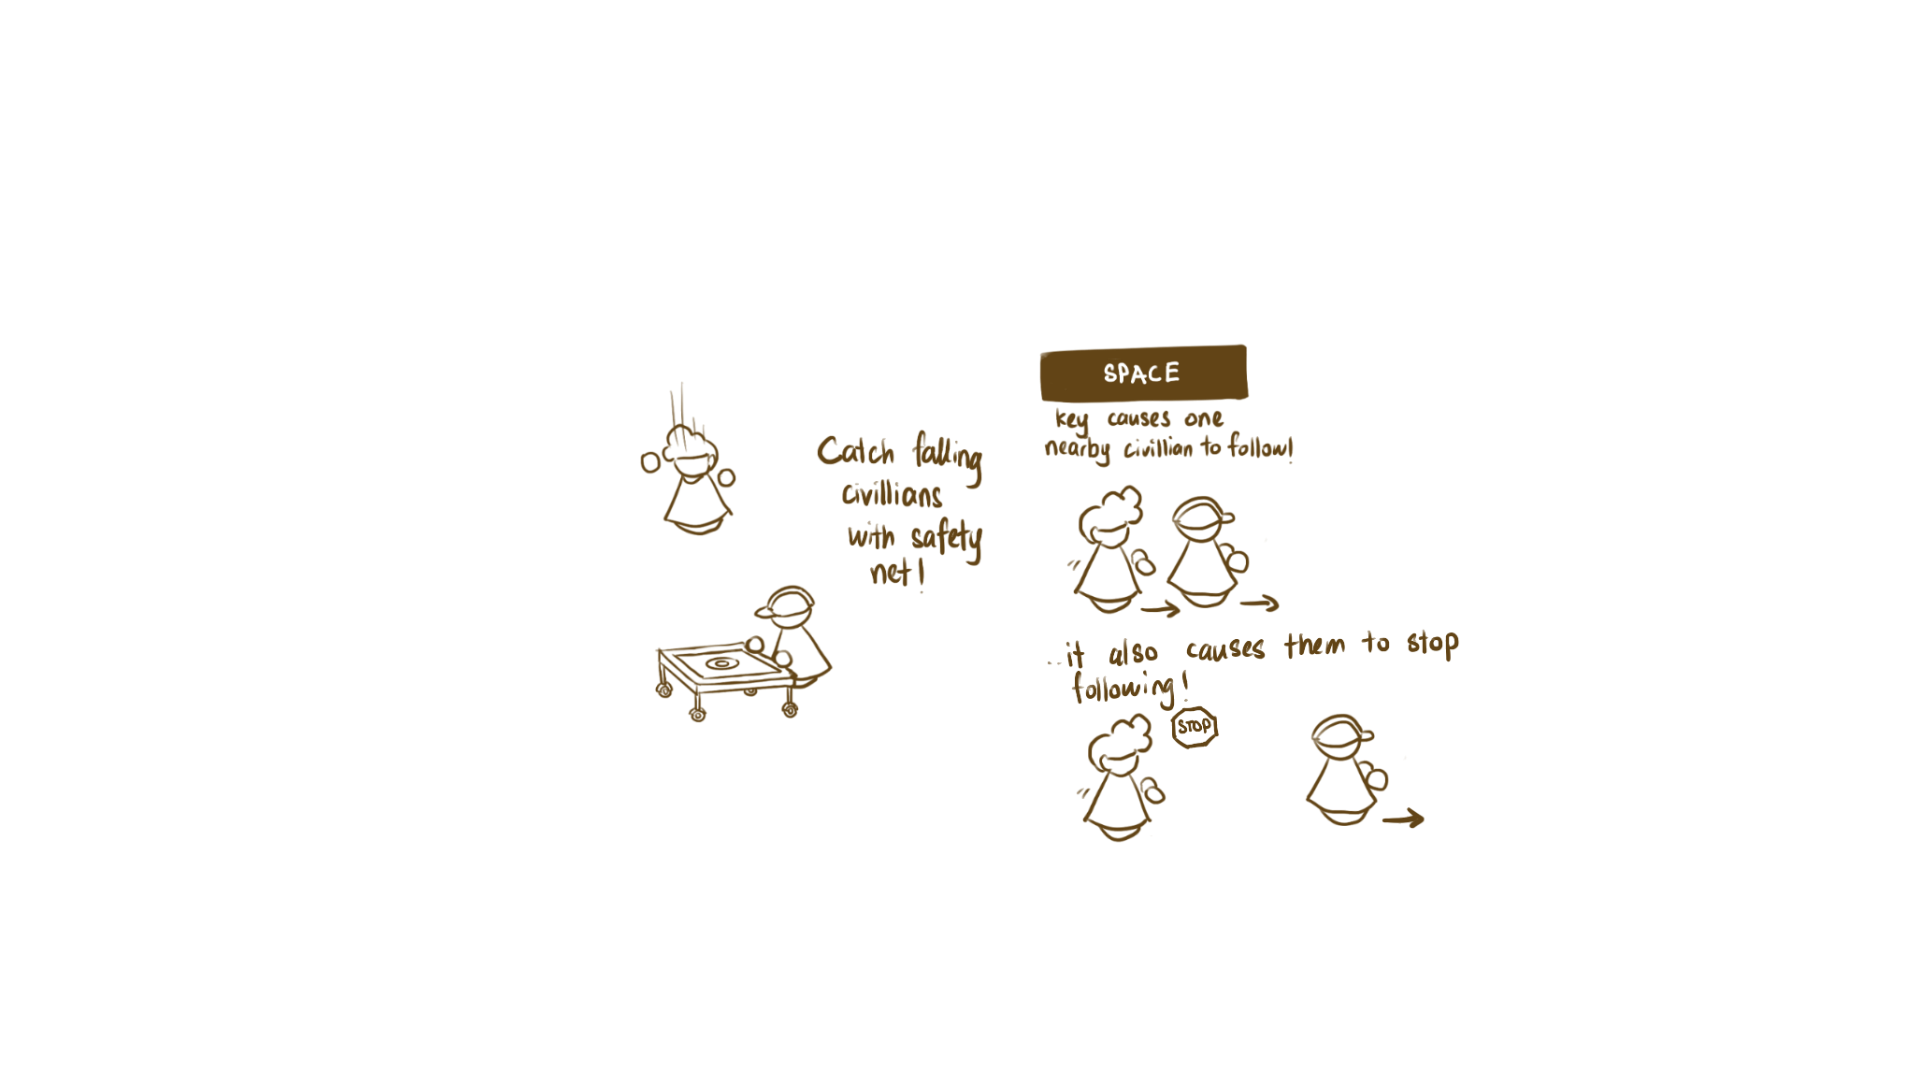 Catch falling
civillians
with safety
net!
SPACE
key causes one
nearby civillian to follow!
...it also causes them to stop
following!
STOP